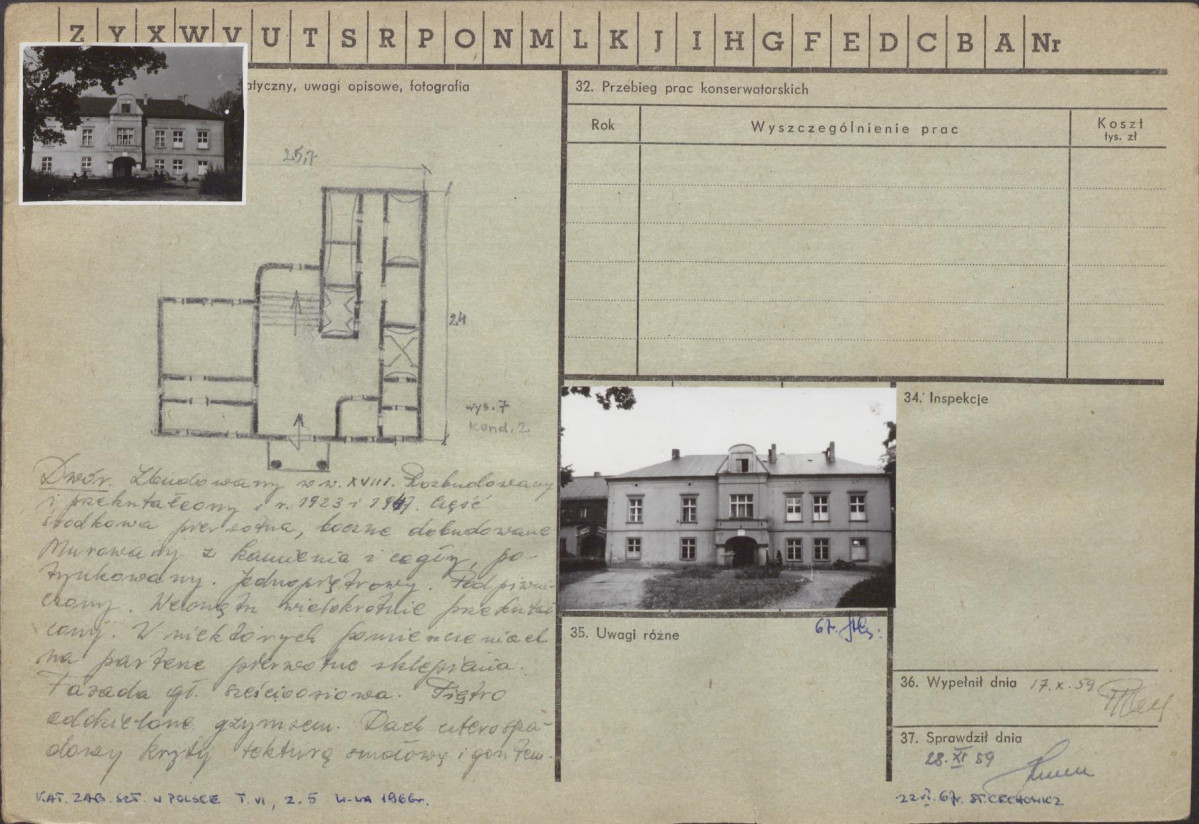 Z Y X W V U T S R P O N M L K J I H G F E D C B A Nr
atyczny, uwagi opisowe, fotografia
25,7
24
wys. 7
Kond. 2
Dwór. Zbudowany w w. XVIII. Rozbudowany
i przekształcony i r. 1923 i 1947. Część
środkowa pierwotna, boczne dobudowane
Murowany z kamienia i cegły, po-
tynkowany. Jednopiętrowy. Podpiwni-
czony. Wewnątrz wielokrotnie przekształ
cony. W niektórych pomieszczeniach
na parterze pierwotne sklepienia.
Fasada gł. sześcioosiowa. Piętro
oddzielone gzymsem. Dach czterospa-
dowy kryty tekturą smołową i gontem.
KAT. ZAB. SZT. W POLSCE T. VI, Z. 5 W-WA 1966r.
32. Przebieg prac konserwatorskich
Rok
Wyszczególnienie prac
Koszt
tys. zł
34. Inspekcje
35. Uwagi różne
67r.
36. Wypełnił dnia 17. X. 59
37. Sprawdził dnia
28. XI 59
22 VI. 67r. ST. CECHOWICZ